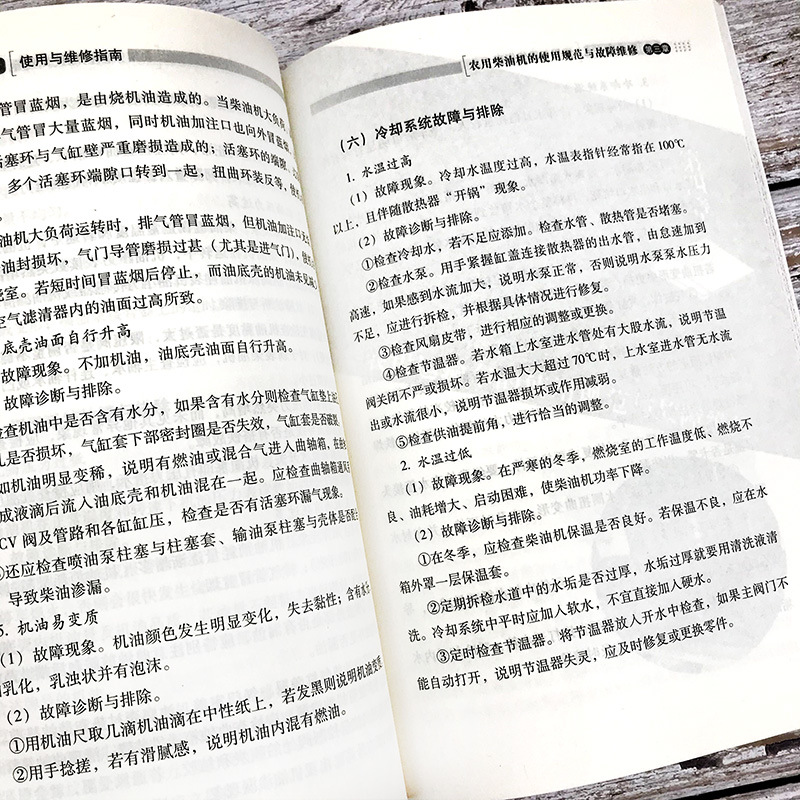 使用与维修指南
管冒蓝烟，是由烧机油造成的。当柴油机大负荷
气管冒大量蓝烟，同时机油加注口也向外冒蓝烟
活塞环与气缸壁严重磨损造成的；活塞环的端隙
多个活塞环端隙口转到一起，扭曲环装反等，
油机大负荷运转时，排气管冒蓝烟，但机油加注口
油封损坏，气门导管磨损过甚（尤其是进气门），
室。若短时间冒蓝烟后停止，而油底壳的机油未见
空气滤清器内的油面过高所致。
底壳油面自行升高
故障现象。不加机油，油底壳油面自行升高。
故障诊断与排除。
检查机油中是否含有水分，如果含有水分则检查气缸垫
是否损坏，气缸套下部密封圈是否失效，气缸套是否破裂
如机油明显变稀，说明有燃油或混合气进入曲轴箱，
成液滴后流入油底壳和机油混在一起。应检查曲轴箱通风
CV 阀及管路和各缸缸压，检查是否有活塞环漏气现象。
还应检查喷油泵柱塞与柱塞套、输油泵柱塞与壳体是否
导致柴油渗漏。
5. 机油易变质
（1）故障现象。机油颜色发生明显变化，失去黏性；含有水
乳化，乳浊状并有泡沫。
（2）故障诊断与排除。
①用机油尺取几滴机油滴在中性纸上，若发黑则说明机油变质
②用手捻搓，若有滑腻感，说明机油内混有燃油。
农用柴油机的使用规范与故障维修 第三章
（六）冷却系统故障与排除
1. 水温过高
（1）故障现象。冷却水温度过高，水温表指针经常指在 100℃
以上，且伴随散热器“开锅”现象。
（2）故障诊断与排除。
①检查冷却水，若不足应添加。检查水管、散热管是否堵塞。
②检查水泵。用手紧握缸盖连接散热器的出水管，由怠速加到
高速，如果感到水流加大，说明水泵正常，否则说明水泵泵水压力
不足，应进行拆检，并根据具体情况进行修复。
③检查风扇皮带，进行相应的调整或更换。
④检查节温器。若水箱上水室进水管处有大股水流，说明节温
阀关闭不严或损坏。若水温大大超过 70℃时，上水室进水管无水流
出或水流很小，说明节温器损坏或作用减弱。
⑤检查供油提前角，进行恰当的调整。
2. 水温过低
（1）故障现象。在严塞的冬季，燃烧室的工作温度低、燃烧不
良、油耗增大、启动困难，使柴油机功率下降。
（2）故障诊断与排除。
①在冬季，应检查柴油机保温是否良好。若保温不良，应在水
箱外罩一层保温套。
②定期拆检水道中的水垢是否过厚，水垢过厚就要用清洗液清
洗。冷却系统中平时应加入软水，不宜直接加入硬水。
③定时检查节温器。将节温器放入开水中检查，如果主阀门不
能自动打开，说明节温器失灵，应及时修复或更换零件。